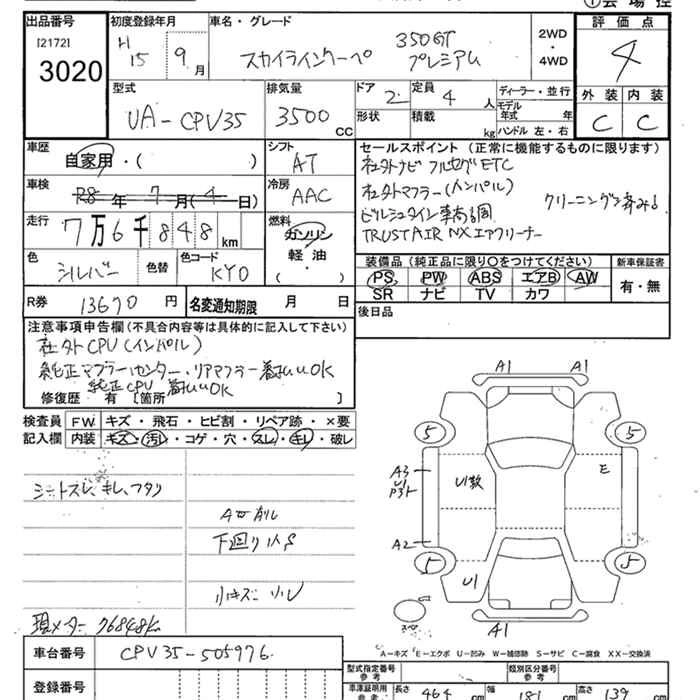 出品番号 初度登録年月 車名・グレード 2WD・4WD 評価点
[2172]
3020
H15 9月 スカイラインクーペ 350GT プレミアム 4
型式 排気量 ドア 2 定員 4人 ディーラー・並行 外装 内装
UA-CPV35 3500CC 形状 積載 kg モデル年式 年 C C
ハンドル 左・右
車歴 自家用・( ) シフト AT セールスポイント(正常に機能するものに限ります)
社外ナビ フルセグ ETC
車検 R8年7月(4日) 冷房 AAC 社外マフラー(カンパル)
クリーニング済みる
走行 7万6千848km 燃料 ガソリン
軽油
( )
TRUST AIR NX エアクリーナー
色 シルバー 色替 色コード KY0 装備品(純正品に限り〇をつけてください) 新車保証書
PS PW ABS エアB AW 有・無
SR ナビ TV カワ
R券 13670円 名変通知期限 月 日 後日品
注意事項申告欄(不具合内容等は具体的に記入して下さい)
社外CPU(インパル)
純正マフラーセンター・リアマフラー着払いOK
純正CPU 着払いOK
修復歴 有 [箇所 ]
検査員記入欄 FW キズ・飛石・ヒビ割・リペア跡・×要
内装 キズ・汚レ・コゲ・穴・スレ・キレ・破レ
シートスレ、キレ、フタリ
下廻り
小キズ 小
現メーター 76848km
A1 A1
5 5
A3
U1 U1数 E
A2
5 5
U1
A1
A-キズ E-エクボ U-凹み W-補修跡 S-サビ C-腐食 XX-交換済
車台番号 CPV35-505976
登録番号
型式指定番号 参考 類別区分番号 参考
車庫証明用 参考 長さ 464cm 幅 181cm 高さ 139cm